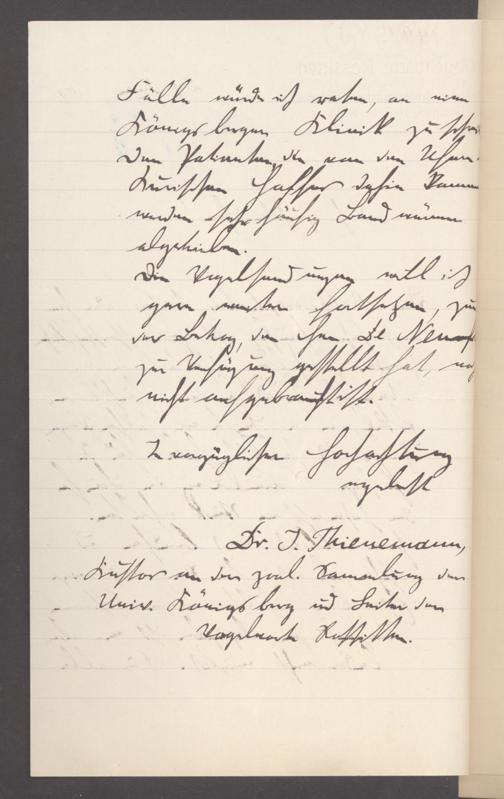 Fälle würde ich raten, an eine
Königsberger Klinik zu schrei
Den Patienten, die von den Ufern
Kurischen Haffes dahin komm
werden sehr häufig Bandwürmer
abgetrieben.
Die Vogelsendungen will ich
gern weiter fortsetzen, zu
der Betrag, den Herr Dr
zur Verfügung gestellt hat, no
nicht aufgebraucht ist.
In vorzüglicher Hochachtung
ergebenst
Dr. J. Thienemann,
Kustos an der zool. Sammlung der
Univ. Königsberg und Leiter der
Vogelwarte Rossitten.